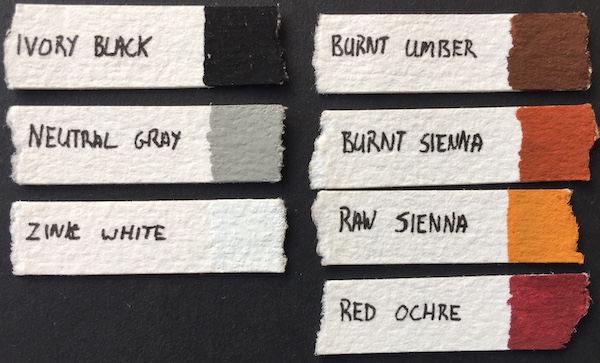 IVORY BLACK
NEUTRAL GRAY
ZINK WHITE
BURNT UMBER
BURNT SIENNA
RAW SIENNA
RED OCHRE